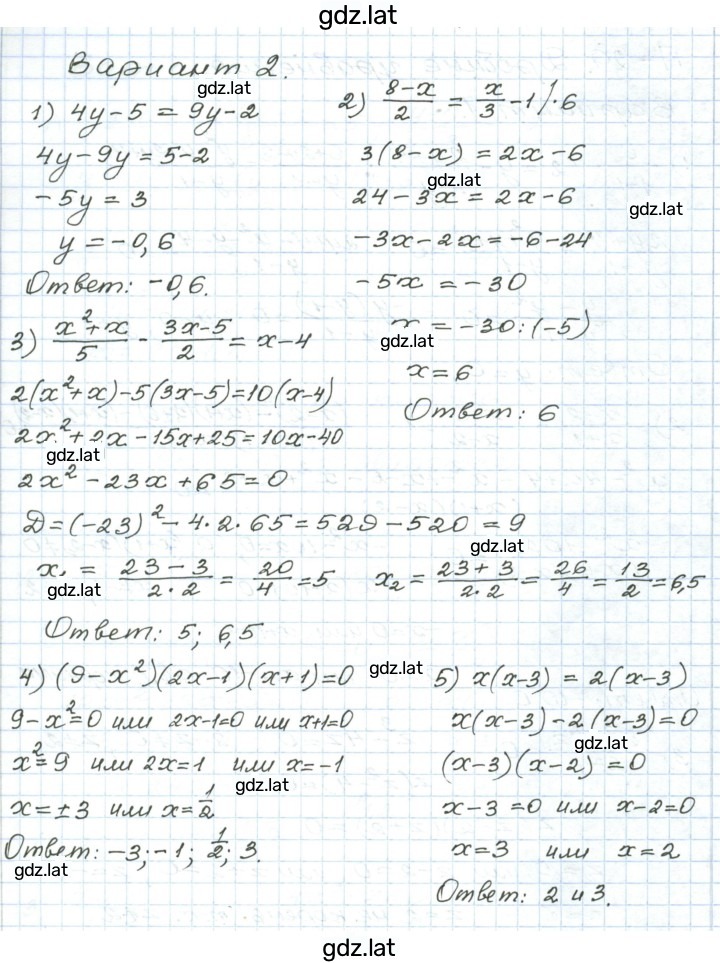 gdz.lat
Вариант 2.
gdz.lat
1) 4y-5 = 9y-2
4y-9y = 5-2
-5y = 3
y = -0,6
Ответ: -0,6.
2) (8-x)/2 = x/3 - 1 |·6
3(8-x) = 2x-6
gdz.lat
24-3x = 2x-6
gdz.lat
-3x-2x = -6-24
-5x = -30
x = -30:(-5)
gdz.lat
x = 6
Ответ: 6
3) (x²+x)/5 - (3x-5)/2 = x-4
2(x²+x)-5(3x-5)=10(x-4)
2x²+2x-15x+25=10x-40
gdz.lat
2x²-23x+65=0
D=(-23)²-4·2·65=529-520=9
gdz.lat
x₁ = (23-3)/(2·2) = 20/4 = 5    x₂ = (23+3)/(2·2) = 26/4 = 13/2 = 6,5
gdz.lat
Ответ: 5; 6,5
4) (9-x²)(2x-1)(x+1)=0
gdz.lat
9-x²=0 или 2x-1=0 или x+1=0
x²=9 или 2x=1 или x=-1
gdz.lat
x=±3 или x=1/2
Ответ: -3; -1; 1/2; 3.
gdz.lat
5) x(x-3) = 2(x-3)
x(x-3)-2(x-3)=0
gdz.lat
(x-3)(x-2)=0
x-3=0 или x-2=0
x=3 или x=2
Ответ: 2 и 3.
gdz.lat